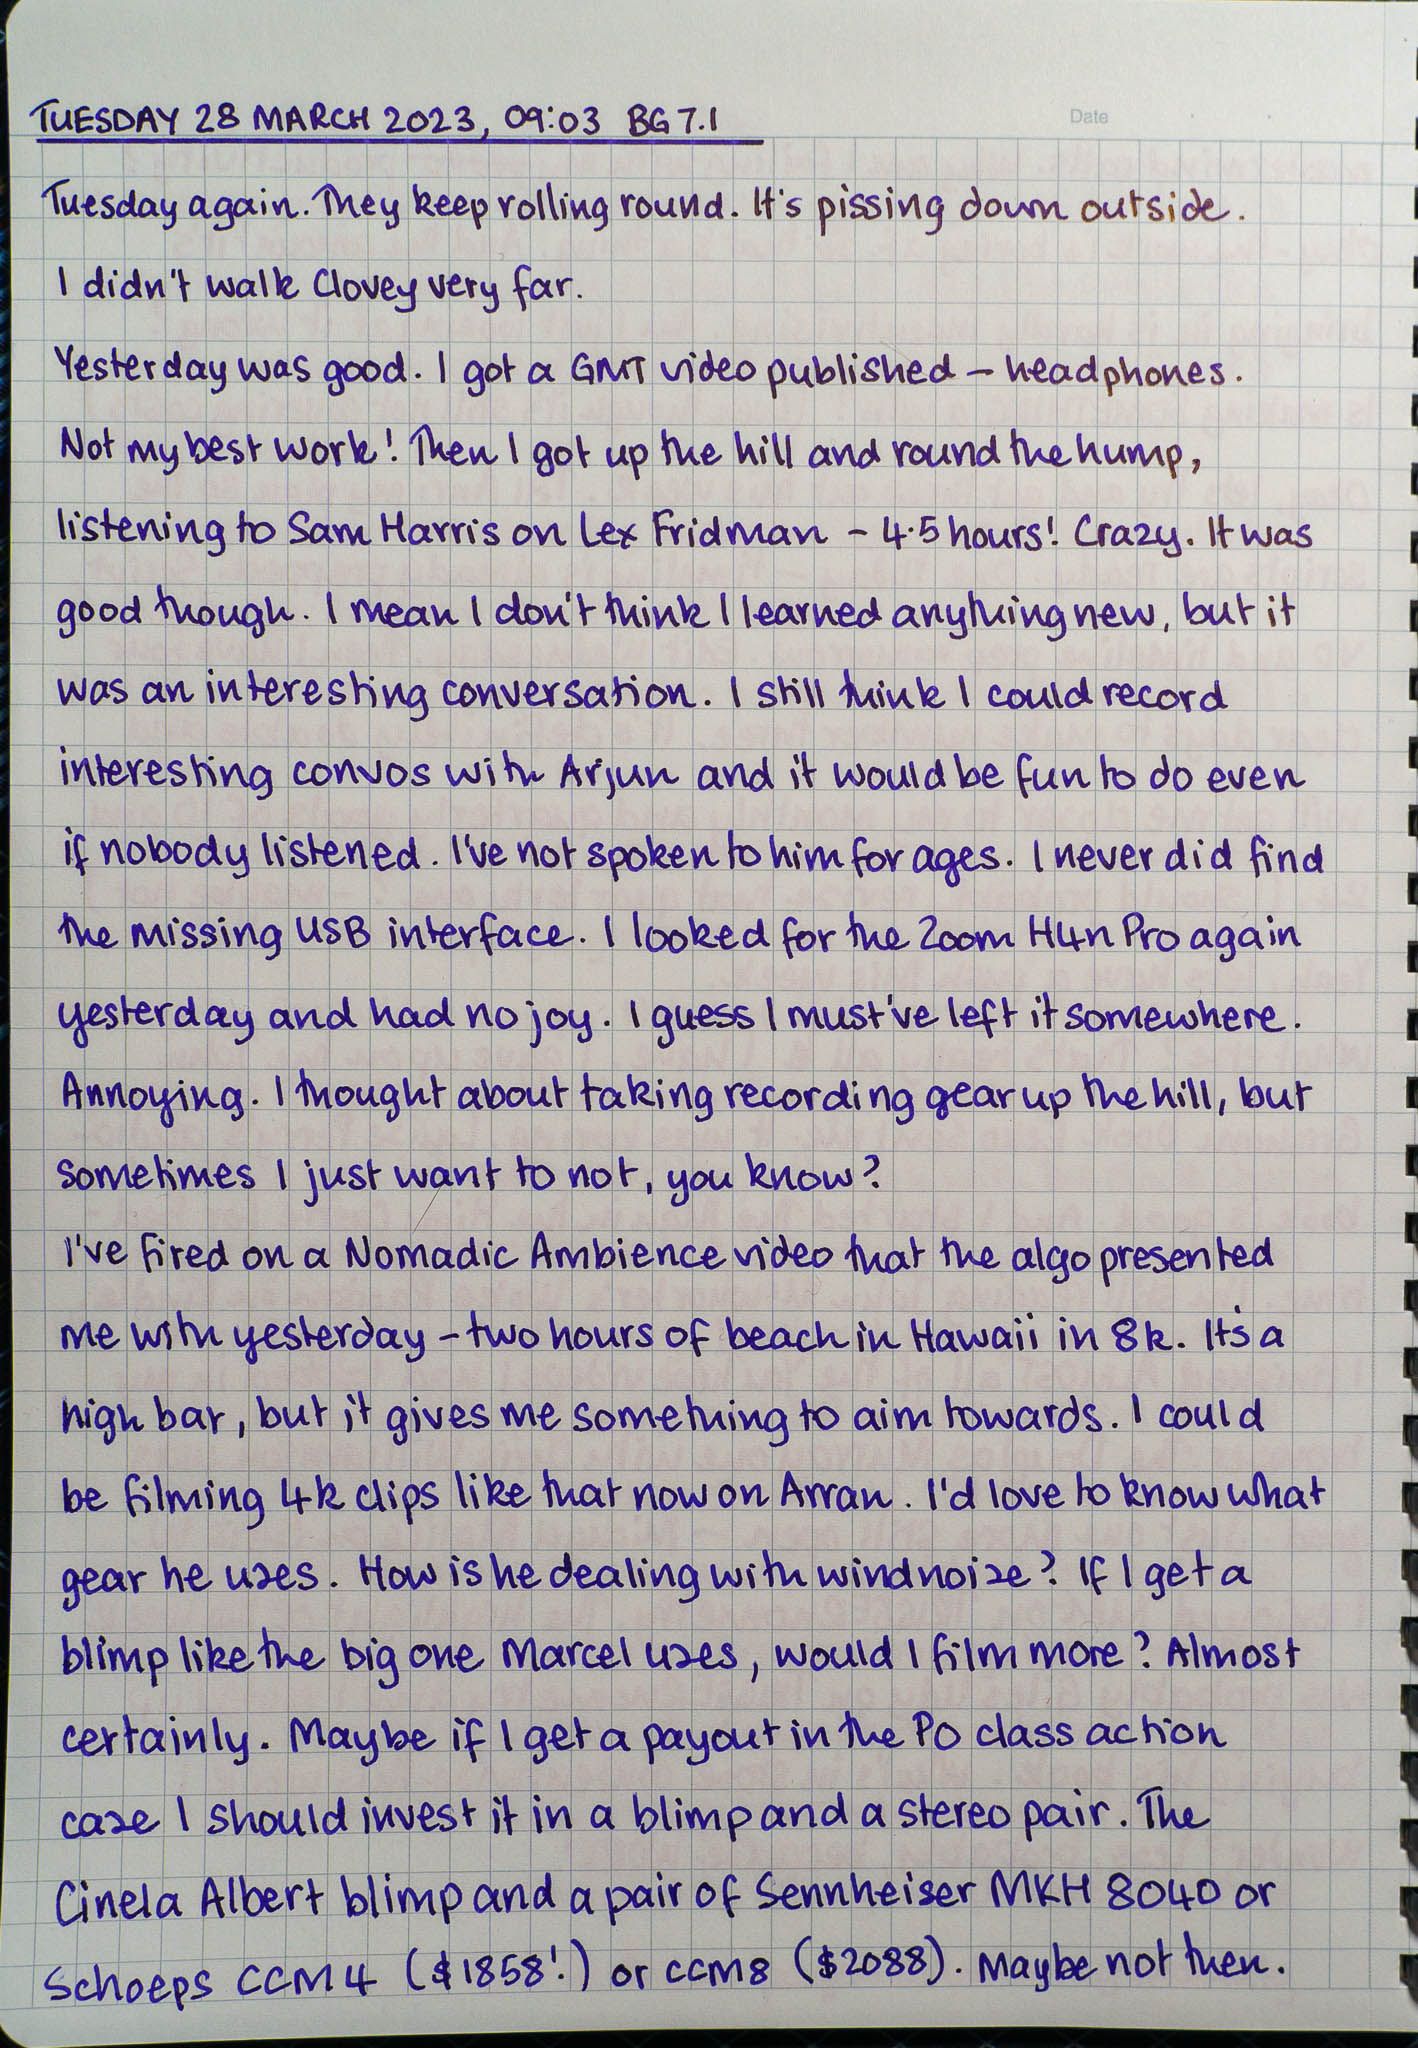 TUESDAY 28 MARCH 2023, 09:03 BG 7.1
Date
Tuesday again. They keep rolling round. It's pissing down outside.
I didn't walk Clovey very far.
Yesterday was good. I got a GMT video published – headphones.
Not my best work! Then I got up the hill and round the hump,
listening to Sam Harris on Lex Fridman – 4.5 hours! Crazy. It was
good though. I mean I don't think I learned anything new, but it
was an interesting conversation. I still think I could record
interesting convos with Arjun and it would be fun to do even
if nobody listened. I've not spoken to him for ages. I never did find
the missing USB interface. I looked for the Zoom H4n Pro again
yesterday and had no joy. I guess I must've left it somewhere.
Annoying. I thought about taking recording gear up the hill, but
sometimes I just want to not, you know?
I've fired on a Nomadic Ambience video that the algo presented
me with yesterday – two hours of beach in Hawaii in 8k. It's a
high bar, but it gives me something to aim towards. I could
be filming 4k clips like that now on Arran. I'd love to know what
gear he uses. How is he dealing with wind noise? If I get a
blimp like the big one Marcel uses, would I film more? Almost
certainly. Maybe if I get a payout in the PO class action
case I should invest it in a blimp and a stereo pair. The
Cinela Albert blimp and a pair of Sennheiser MKH 8040 or
Schoeps CCM4 ($1858!) or CCM8 ($2088). Maybe not then.